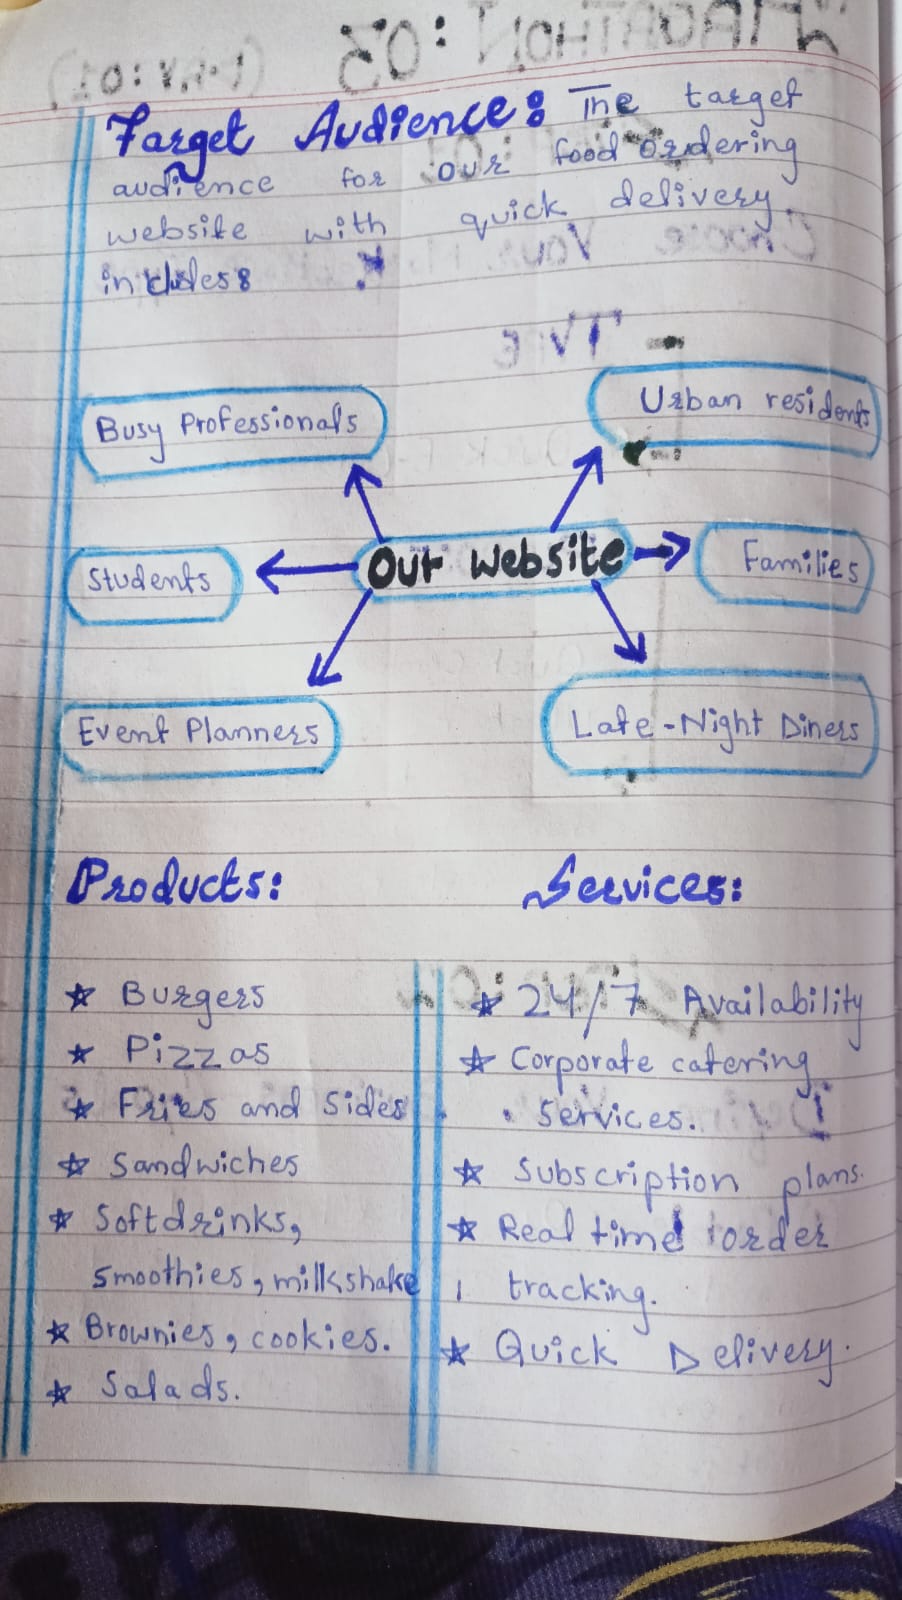 Target Audience: The target
audience for our food ordering
website with quick delivery
includes:
Busy Professionals
Urban residents
Students
Our Website
Families
Event Planners
Late-Night Diners
Products:
★ Burgers
★ Pizzas
★ Fries and Sides
★ Sandwiches
★ Softdrinks,
smoothies, milkshake
★ Brownies, cookies.
★ Salads.
Services:
★ 24/7 Availability
★ Corporate catering
services.
★ Subscription plans.
★ Real time order
tracking.
★ Quick Delivery.